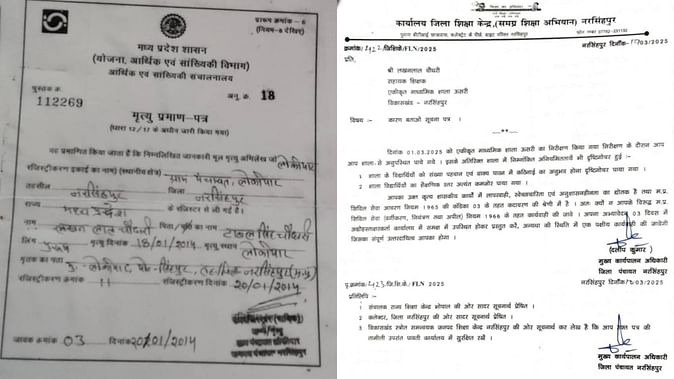 प्रारूप क्रमांक - 6
(नियम-8 देखिए)
मध्य प्रदेश शासन
(योजना, आर्थिक एवं सांख्यिकी विभाग)
आर्थिक एवं सांख्यिकी संचालनालय
पुस्तक क्र.
112269
अनु. क्र. 18
मृत्यु प्रमाण-पत्र
(धारा 12/17 के अधीन जारी किया गया)
यह प्रमाणित किया जाता है कि निम्नलिखित जानकारी मूल मृत्यु अभिलेख जो लोकीपार
रजिस्ट्रीकरण इकाई का नाम) (स्थानीय क्षेत्र) ग्राम पंचायत, लोकीपार
तहसील नरसिंहपुर जिला नरसिंहपुर
राज्य मध्य प्रदेश के रजिस्टर से ली गई है।
नाम लखन लाल चौधरी
लिंग पुरुष मृत्यु दिनांक 18/01/2014 मृत्यु स्थान लोकीपार
मृतक का पता
रजिस्ट्रीकरण क्रमांक 11 रजिस्ट्रीकरण दिनांक 20/01/2014
जावक क्रमांक 03 दिनांक 20/01/2014
कार्यालय जिला शिक्षा केन्द्र,(समग्र शिक्षा अभियान) नरसिंहपुर
क्रमांक/ /जि.शि.के/FLN/2025
नरसिंहपुर दिनांक /03/2025
प्रति,
श्री लखनलाल चौधरी
सहायक शिक्षक
एकीकृत माध्यमिक शाला ऊसरी
विकासखंड - नरसिंहपुर
विषय : कारण बताओ सूचना पत्र ।
--**--
दिनांक 01.03.2025 को एकीकृत माध्यमिक शाला ऊसरी का निरीक्षण किया गया निरीक्षण के दौरान आप
आप शाला से अनुपस्थित पाये गये । इसके अतिरिक्त शाला में निम्नांकित अनियमितताएँ भी दृष्टिगोचर हुई :-
1 शाला के विद्यार्थियों को संख्या पहचान एवं वाक्य पठन में कठिनाई का अनुभव होना दृष्टिगोचर पाया गया ।
2 शाला विद्यार्थियों का शैक्षणिक स्तर अत्यंत कमजोर पाया गया ।
आप का उक्त कृत्य शासकीय कार्यों में लापरवाही, स्वेच्छाचारिता एवं अनुशासनहीनता का द्योतक है तथा म.प्र.
सिविल सेवा आचरण नियम 1965 की कंडिका 03 के तहत कदाचरण की श्रेणी में है । अतः क्यों न आपके विरूद्ध म.प्र.
सिविल सेवा (वर्गीकरण, नियंत्रण तथा अपील) नियम 1966 के तहत कार्यवाही की जावे । अपना अभ्यावेदन 03 दिवस में
अधोहस्ताक्षरकर्ता कार्यालय के समक्ष में उपस्थित होकर प्रस्तुत करें, अन्यथा की स्थिति में एक पक्षीय कार्यवाही की जावेगी
जिसका संपूर्ण उत्तरदायित्व आपका होगा ।
(दलीप कुमार)
मुख्य कार्यपालन अधिकारी
जिला पंचायत नरसिंहपुर
पृ.क्रमांक/ /जि.शि.के./FLN 2025
नरसिंहपुर दिनांक /03/2025
प्रतिलिपि :-
1 संचालक राज्य शिक्षा केन्द्र भोपाल की ओर सादर सूचनार्थ प्रेषित ।
2 कलेक्टर, जिला नरसिंहपुर की ओर सादर सूचनार्थ प्रेषित ।
3 विकासखंड स्त्रोत समन्वयक जनपद शिक्षा केन्द्र नरसिंहपुर की ओर सूचनार्थ कर लेख है कि आप उक्त पत्र की
तामीली उपरांत पावती कार्यालय में सुरक्षित रखें ।
मुख्य कार्यपालन अधिकारी
जिला पंचायत नरसिंहपुर